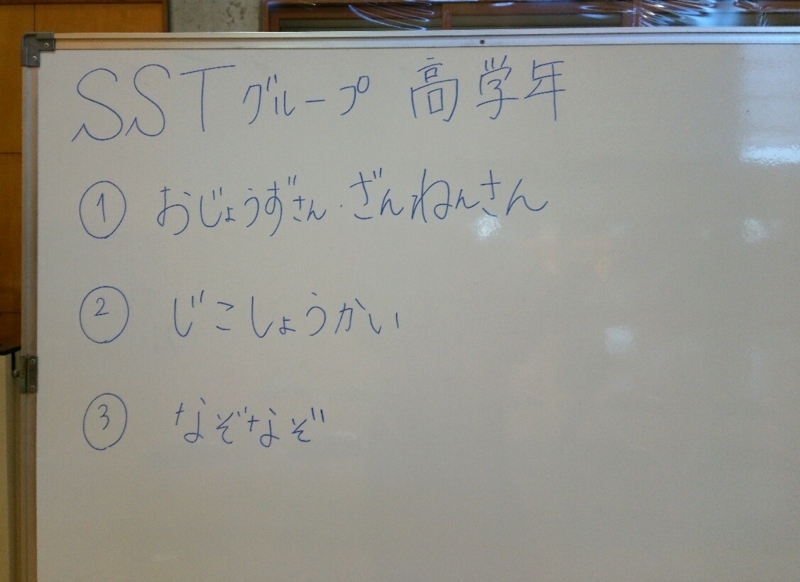 SSTグループ 高学年
① おじょうずさん・ざんねんさん
② じこしょうかい
③ なぞなぞ